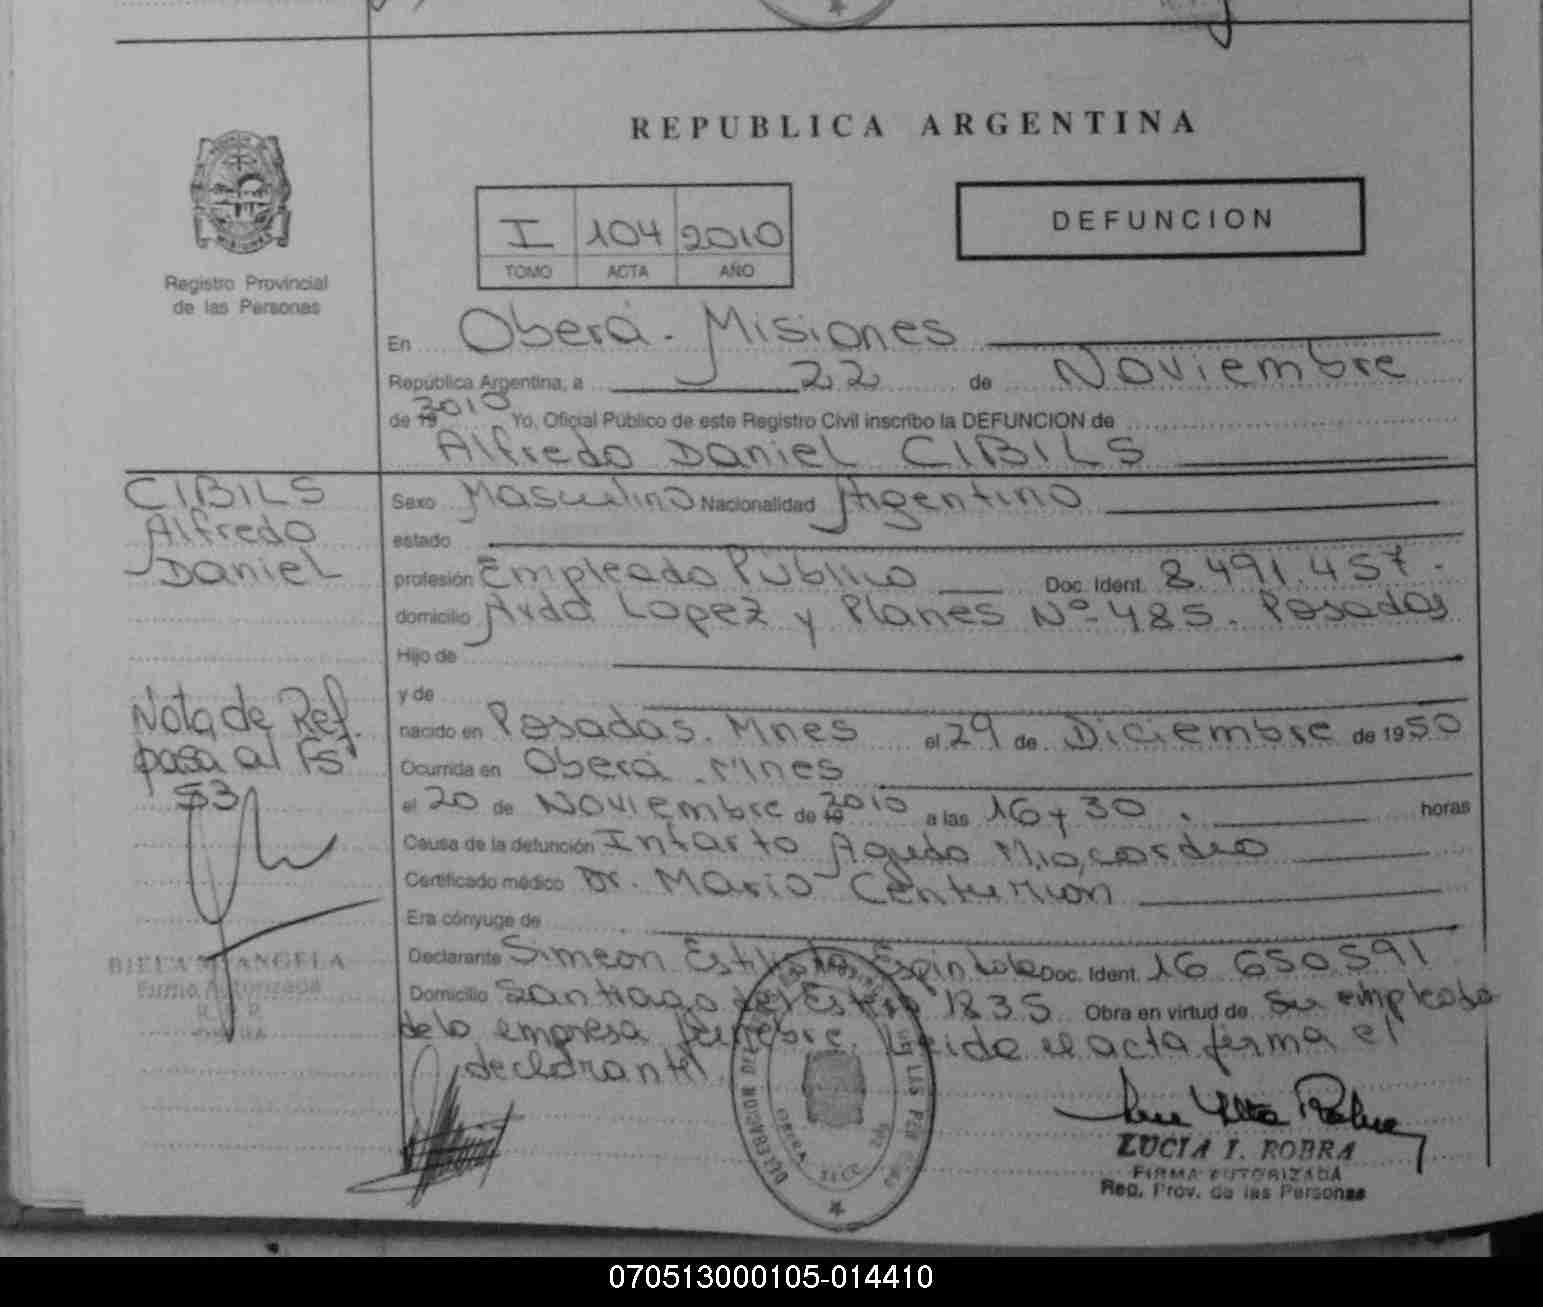 REPUBLICA ARGENTINA
DEFUNCION
I 104 2010
TOMO ACTA AÑO
Registro Provincial
de las Personas
En Oberá - Misiones
República Argentina, a 22 de Noviembre
de 19 2010 Yo, Oficial Público de este Registro Civil inscribo la DEFUNCION de
Alfredo Daniel CIBILS
CIBILS
Alfredo
Daniel
Sexo Masculino Nacionalidad Argentino
estado
profesión Empleado Público Doc. Ident. 8.491.457.
domicilio Avda Lopez y Planes Nº 485. Posadas
Hijo de
y de
nacido en Posadas. Mnes el 29 de Diciembre de 1950
Ocurrida en Oberá. Mnes
el 20 de Noviembre de 19 2010 a las 16 y 30. horas
Causa de la defunción Infarto Agudo Miocardio
Certificado médico Dr. Mario Centurion
Era cónyuge de
Declarante Simeon Espindola Doc. Ident. 16 650.591
Domicilio Santiago del Estero 1835 Obra en virtud de Su empleado
de la empresa funebre. Leida el acta firma el
declarante.
Nota de Ref.
pasa al Fs
53
M. ANGELA
Firma Autorizada
LUCIA I. ROBRA
FIRMA AUTORIZADA
Reg. Prov. de las Personas
070513000105-014410